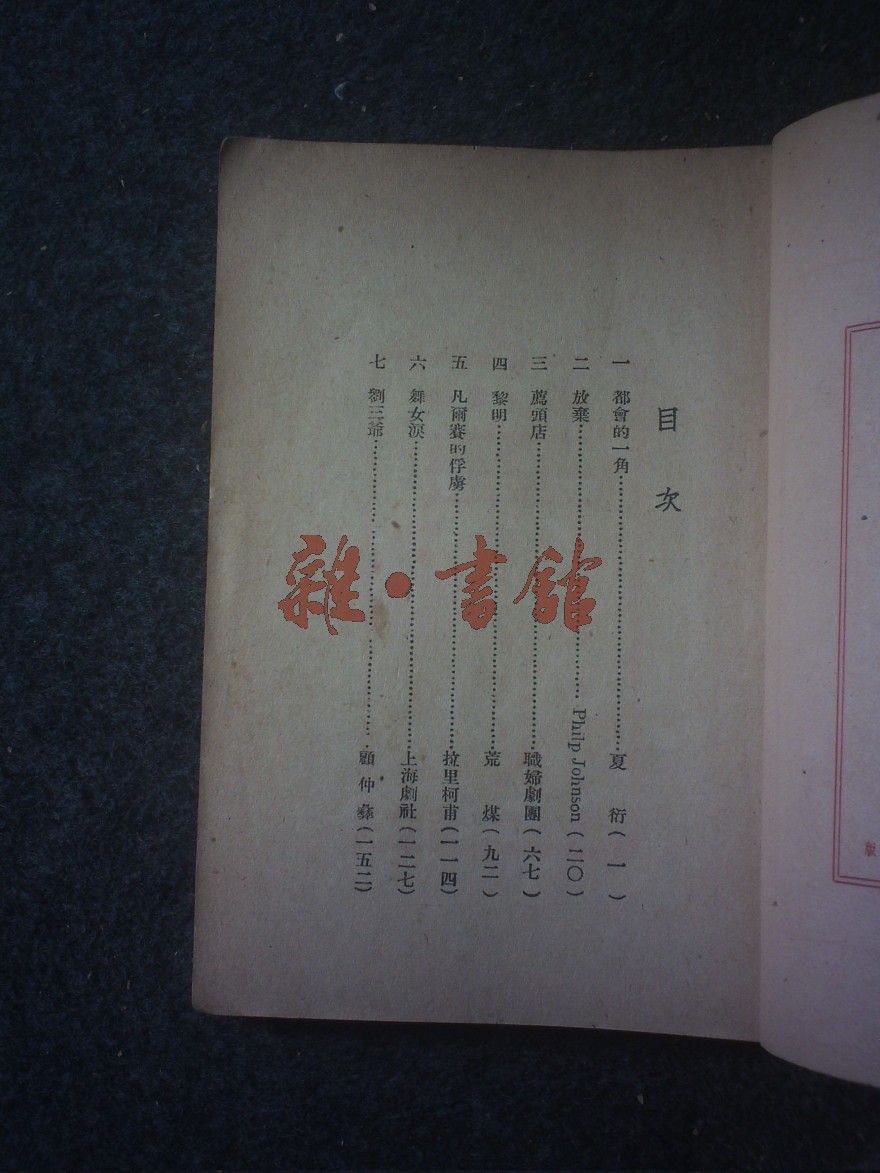 目次
一 都會的一角……夏衍(一)
二 放棄……Philp Johnson(二〇)
三 薦頭店……職婦劇團(六七)
四 黎明……荒煤(九二)
五 凡爾賽的俘虜……拉里柯甫(一一四)
六 舞女淚……上海劇社(一二七)
七 劉三爺……顧仲彝(一五二)
雜·書館
版